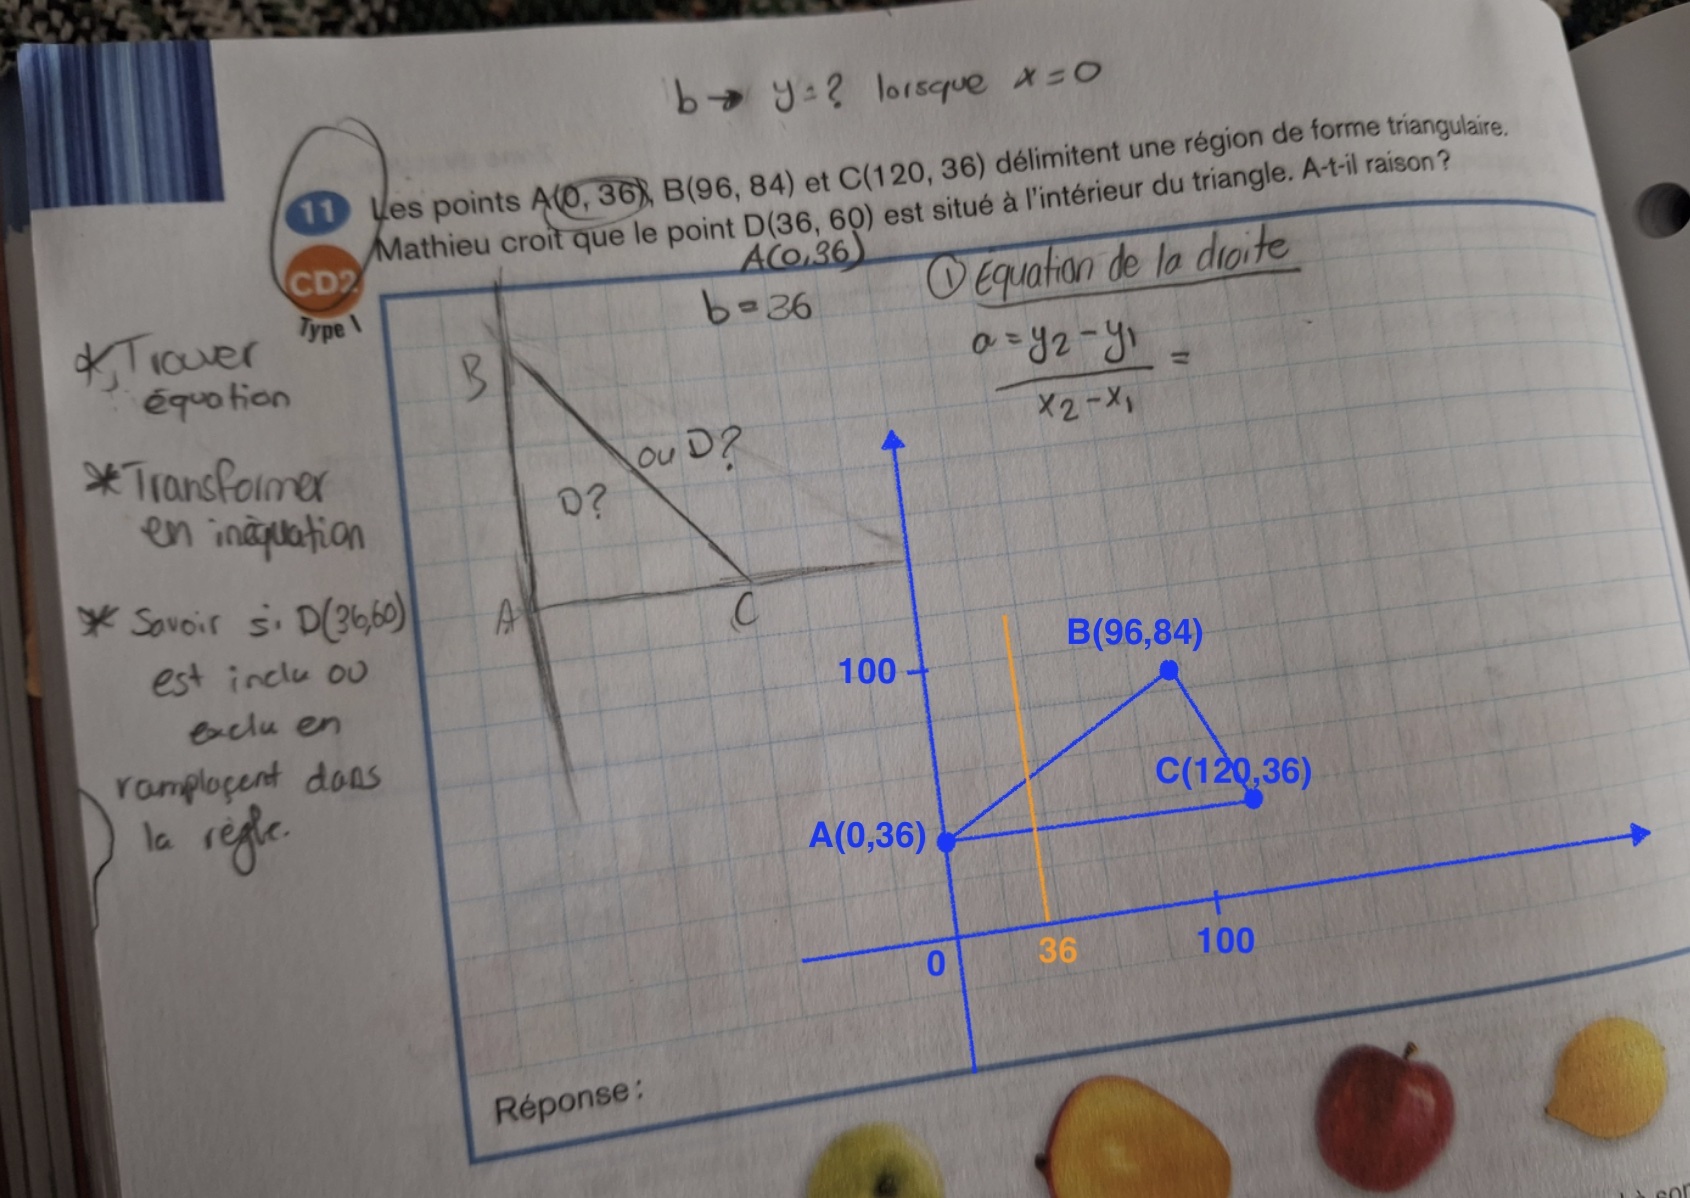 b → y = ? lorsque x = 0
11 Les points A(0, 36), B(96, 84) et C(120, 36) délimitent une région de forme triangulaire.
Mathieu croit que le point D(36, 60) est situé à l'intérieur du triangle. A-t-il raison?
CD2
Type 1
A(0,36)
b = 36
① Equation de la droite
a = y2 - y1 =
x2 - x1
* Trouver
équation
* Transformer
en inéquation
* Savoir si D(36,60)
est inclu ou
exclu en
ramplaçent dans
la règle.
B
ou D?
D?
A
C
B(96,84)
100
C(120,36)
A(0,36)
0
36
100
Réponse :